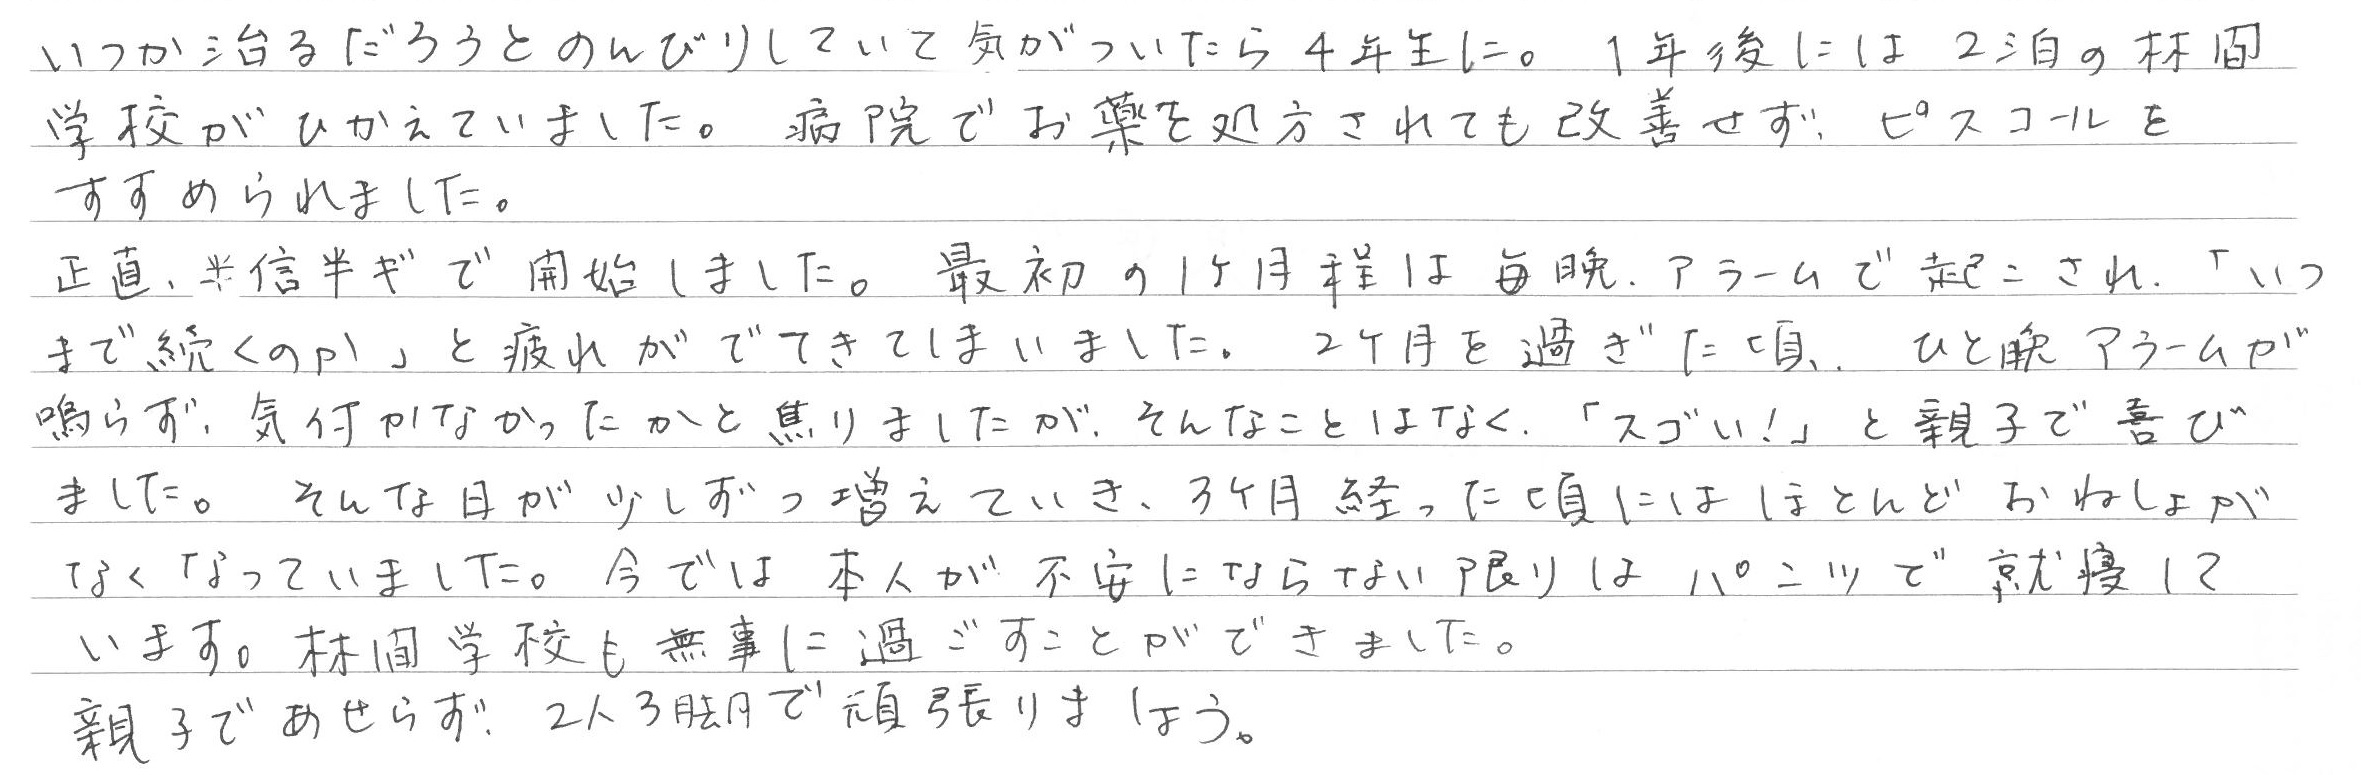 いつか治るだろうとのんびりしていて気がついたら4年生に。1年後には2泊の林間
学校がひかえていました。病院でお薬を処方されても改善せず、ピスコールを
すすめられました。
正直、半信半ギで開始しました。最初の1ケ月程は毎晩、アラームで起こされ、「いつ
まで続くのか」と疲れがでてきてしまいました。2ケ月を過ぎた頃、ひと晩アラームが
鳴らず、気付かなかったかと焦りましたが、そんなことはなく、「スゴい!」と親子で喜び
ました。そんな日が少しずつ増えていき、3ケ月経った頃にはほとんどおねしょが
なくなっていました。今では本人が不安にならない限りはパンツで就寝して
います。林間学校も無事に過ごすことができました。
親子であせらず、2人3脚で頑張りましょう。